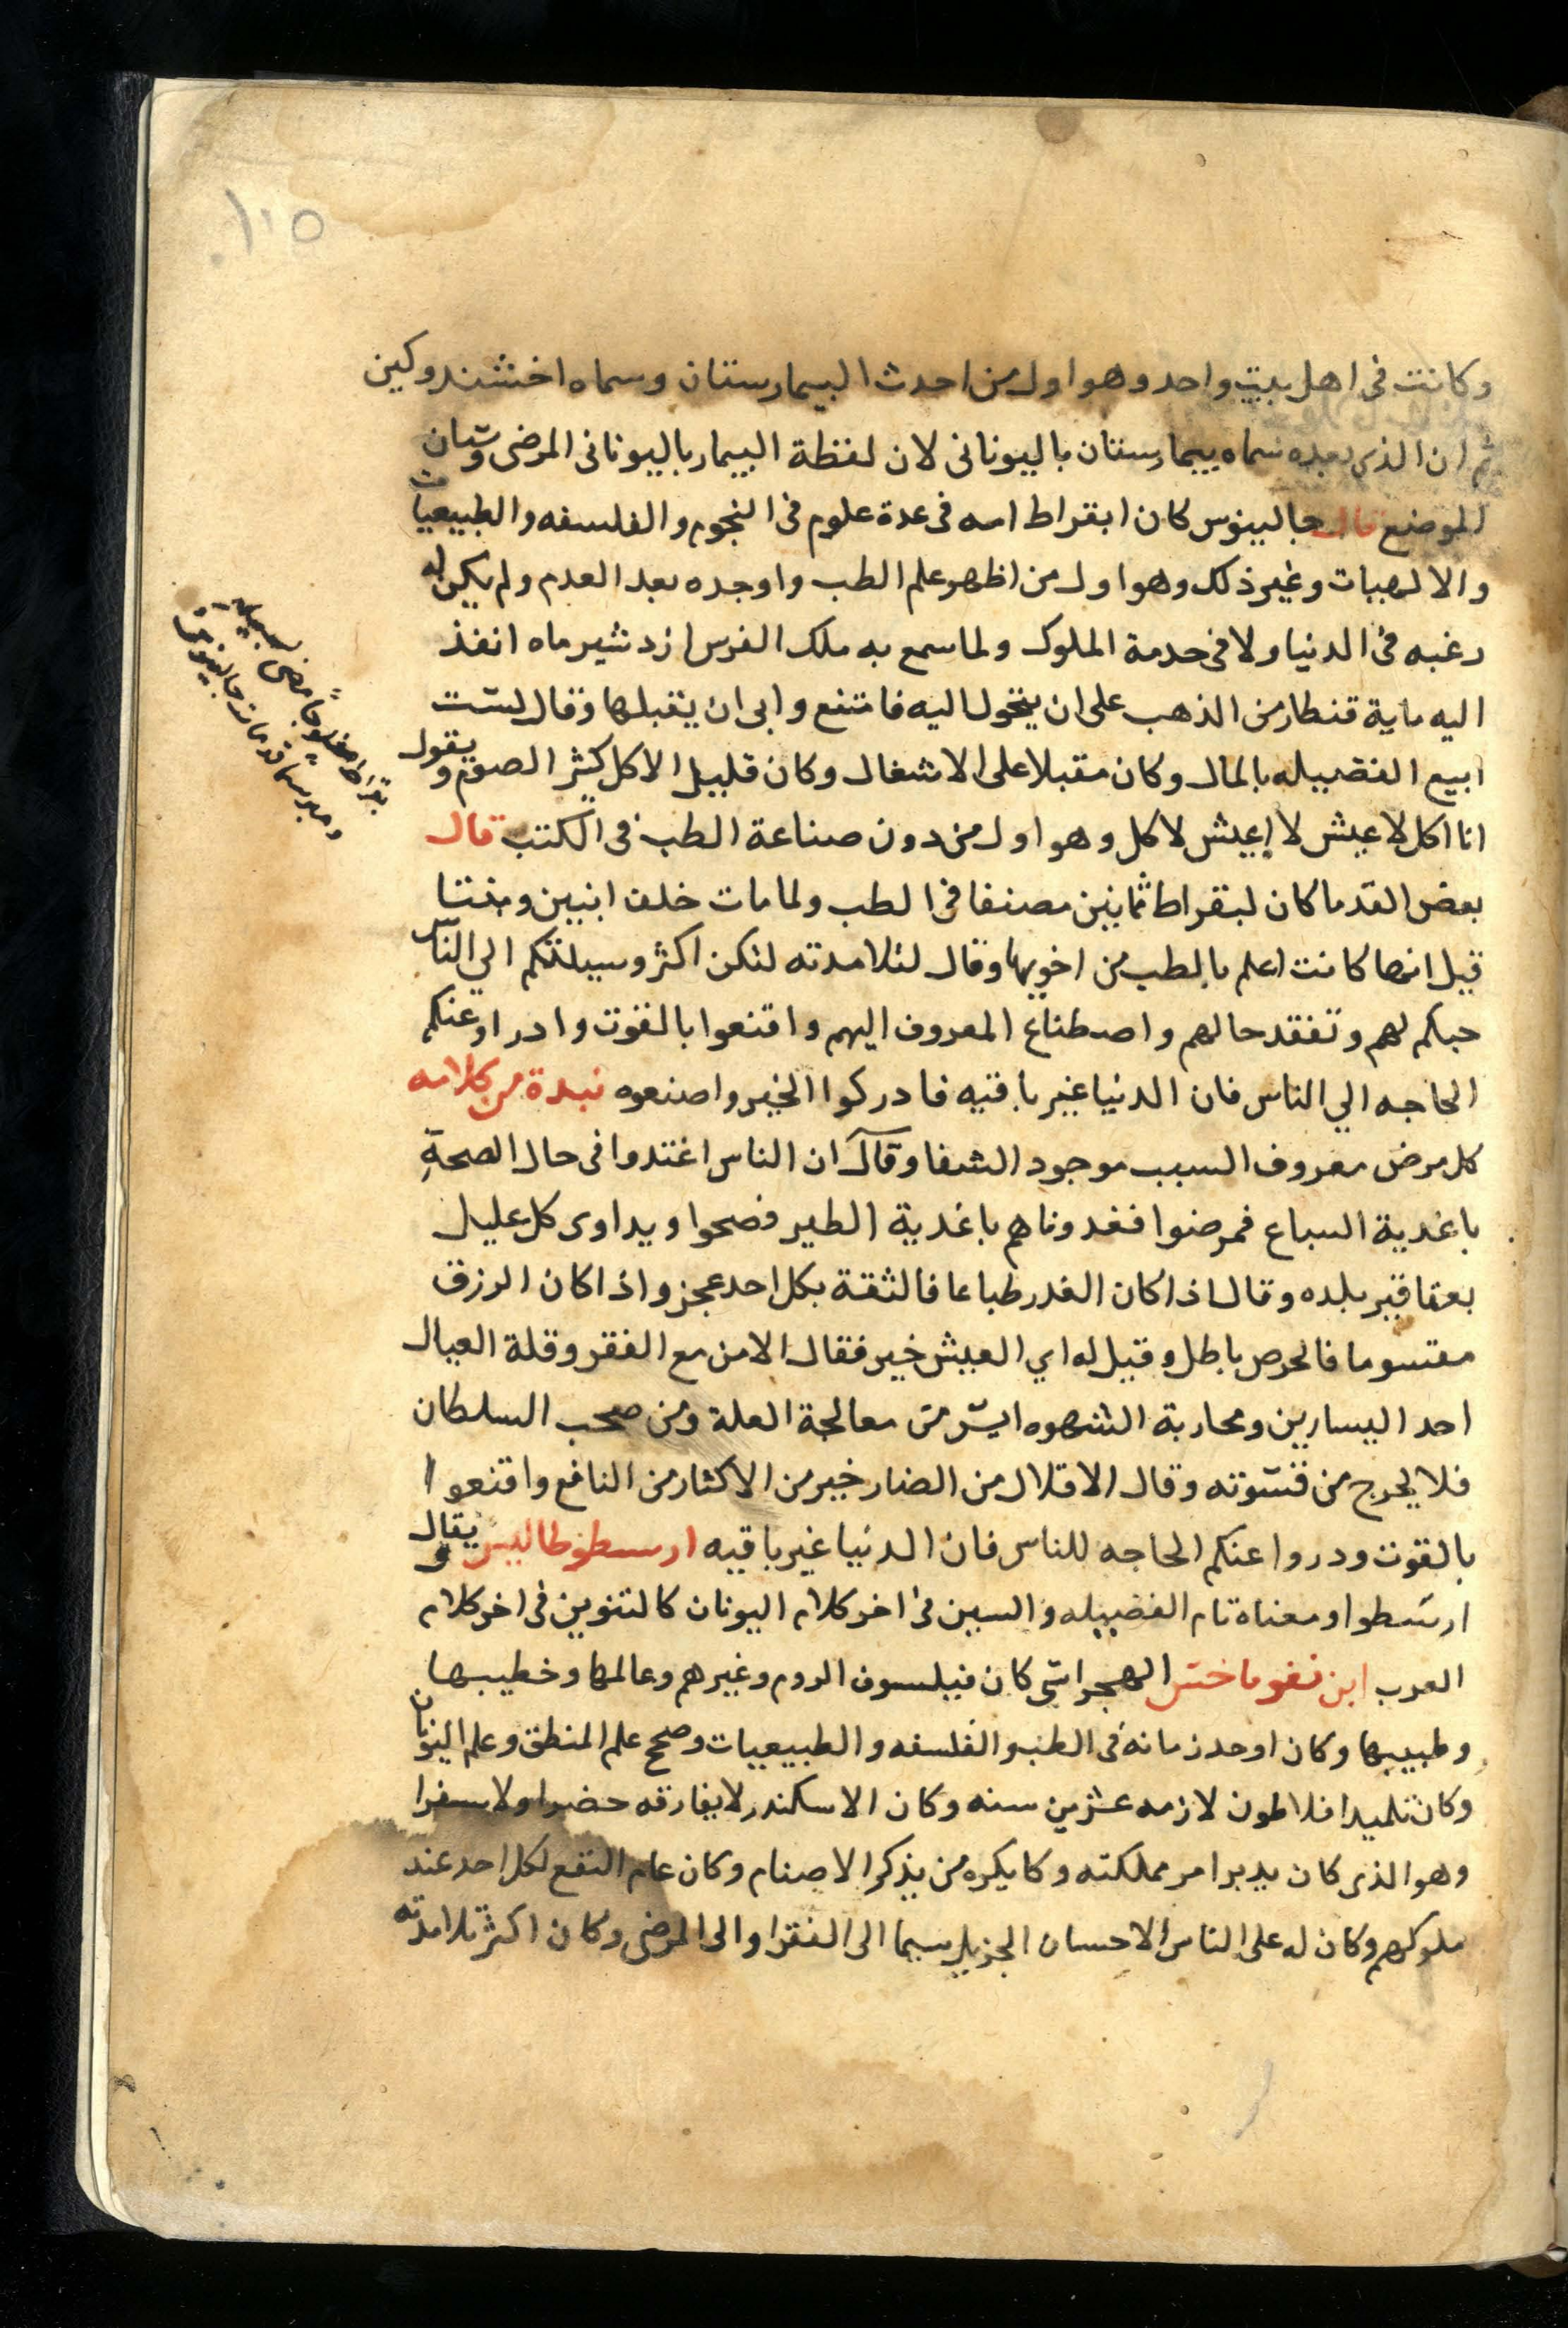 ١١٥
وكانت فى اهل بيت واحد وهو اول من احدث البيمارستان وسماه اخشندوكين
ثم ان الذى بعده سماه بيمارستان باليونانى لان لفظة البيمار باليونانى المرضى وستان
الموضع قال جالينوس كان ابقراط امه فى عدة علوم فى النجوم والفلسفه والطبيعيات
والالهيات وغير ذلك وهو اول من اظهر علم الطب واوجده بعد العدم ولم يكن له
رغبه فى الدنيا ولا فى خدمة الملوك ولما سمع به ملك الفرس ازدشير ماه انفذ
اليه ماية قنطار من الذهب على ان يتحول اليه فامتنع وابى ان يقبلها وقال لست
ابيع الفضيله بالمال وكان مقبلا على الاشغال وكان قليل الاكل كثير الصوم ويقول
انا اكل لاعيش لا اعيش لاكل وهو اول من دون صناعة الطب فى الكتب قال
بعض القدما كان لبقراط ثمانين مصنفا فى الطب ولما مات خلف ابنين وبنتا
قيل انها كانت اعلم بالطب من اخويها وقال لتلامدته لتكن اكثر وسيلتكم الي الناس
حبكم لهم وتفقد حالهم واصطناع المعروف اليهم واقنعوا بالقوت وادراوعنكم
الحاجه الي الناس فان الدنيا غير باقيه فادركوا الخير واصنعوه نبدة من كلامه
كل مرض معروف السبب موجود الشفا وقال ان الناس اغتدوا فى حال الصحة
باغدية السباع فمرضوا فغدوناهم باغدية الطير فصحوا ويداوى كل عليل
بعقاقير بلده وقال اذا كان الغدر طباعا فالثقة بكل احد عجز واذا كان الرزق
مقسوما فالحرص باطل وقيل له اي العيش خير فقال الامن مع الفقر وقلة العيال
احد اليسارين ومحاربة الشهوه ايسر من معالجة العلة ومن صحب السلطان
فلا يجرح من قسوته وقال الاقلال من الضار خير من الاكثار من النافع واقنعوا
بالقوت ودروا عنكم الحاجه للناس فان الدنيا غير باقيه ارسطوطاليس ويقال
ارسطوا ومعناه تام الفضيله والسين فى اخر كلام اليونان كالتنوين فى اخر كلام
العرب ابن نقوماخس الهجراتى كان فيلسوف الروم وغيرهم وعالمها وخطيبها
وطبيبها وكان اوحد زمانه فى الطب والفلسفه والطبيعيات وصحح علم المنطق وعلم اليونان
وكان تلميد افلاطون لازمه عشرين سنه وكان الاسكندر لا يفارقه حضرا ولا سفرا
وهو الذى كان يدبر امر مملكته وكا يكره من يذكر الاصنام وكان عام النفع لكل احد عند
ملوكهم وكان له على الناس الاحسان الجزيل سيما الى الفقرا والى المرضى وكان اكثر تلامدته
بقراط مفلوجا مضى لسبيله
ومبرسما قد مات جالينوس